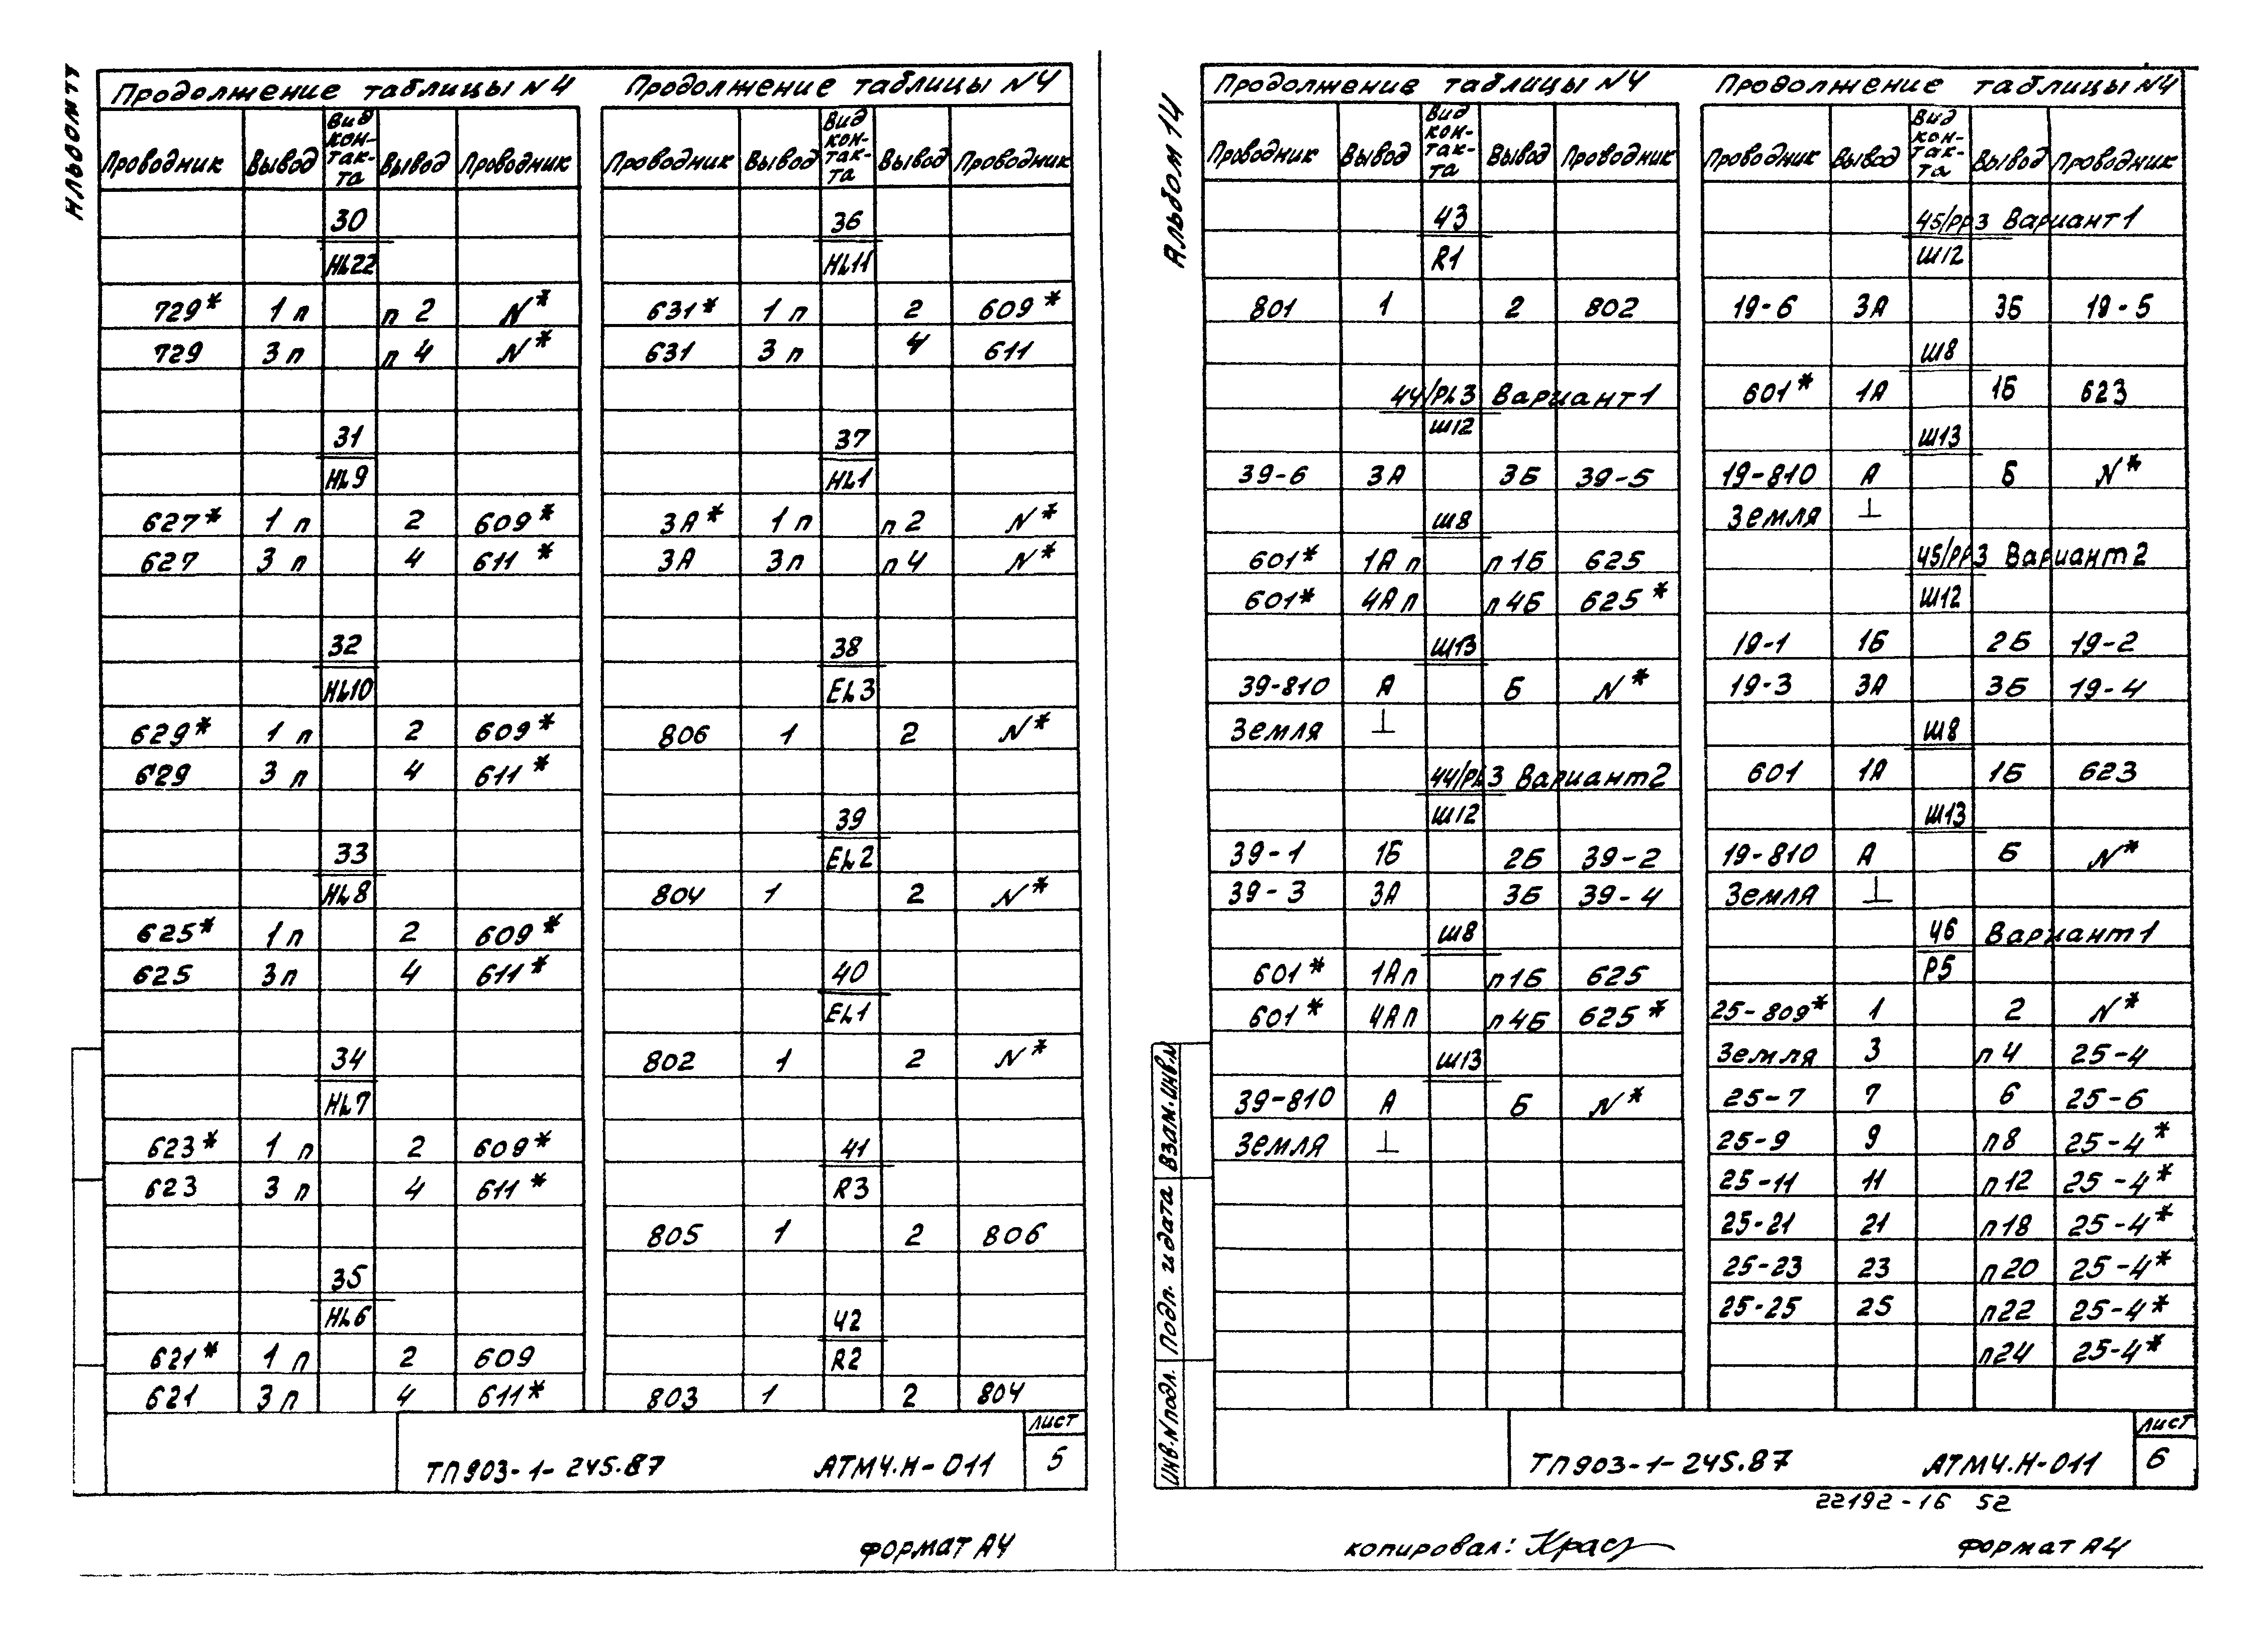 Альбом 14
Продолжение таблицы №4
Проводник Вывод Вид кон-так-та Вывод Проводник
30
HL22
729* 1 п п 2 N*
729 3 п п 4 N*
31
HL9
627* 1 п 2 609*
627 3 п 4 611*
32
HL10
629* 1 п 2 609*
629 3 п 4 611*
33
HL8
625* 1 п 2 609*
625 3 п 4 611*
34
HL7
623* 1 п 2 609*
623 3 п 4 611*
35
HL6
621* 1 п 2 609
621 3 п 4 611*
Продолжение таблицы №4
Проводник Вывод Вид кон-так-та Вывод Проводник
36
HL11
631* 1 п 2 609*
631 3 п 4 611
37
HL1
3А* 1 п п 2 N*
3А 3п п 4 N*
38
EL3
806 1 2 N*
39
EL2
804 1 2 N*
40
EL1
802 1 2 N*
41
R3
805 1 2 806
42
R2
803 1 2 804
ТП903-1-245.87 АТМ4.Н-011
Лист
5
Формат А4
Альбом 14
Продолжение таблицы №4
Проводник Вывод Вид кон-так-та Вывод Проводник
43
R1
801 1 2 802
44/PL3 Вариант 1
Ш12
39-6 3А 3Б 39-5
Ш8
601* 1А п п 1Б 625
601* 4А п п 4Б 625*
Ш13
39-810 А Б N*
Земля ⊥
44/PL3 Вариант 2
Ш12
39-1 1Б 2Б 39-2
39-3 3А 3Б 39-4
Ш8
601* 1А п п 1Б 625
601* 4А п п 4Б 625*
Ш13
39-810 А Б N*
Земля ⊥
Продолжение таблицы №4
Проводник Вывод Вид кон-так-та Вывод Проводник
45/РР3 Вариант 1
Ш12
19-6 3А 3Б 19-5
Ш8
601* 1А 1Б 623
Ш13
19-810 А Б N*
Земля ⊥
45/РР3 Вариант 2
Ш12
19-1 1Б 2Б 19-2
19-3 3А 3Б 19-4
Ш8
601 1А 1Б 623
Ш13
19-810 А Б N*
Земля ⊥
46 Вариант 1
Р5
25-809* 1 2 N*
Земля 3 п 4 25-4
25-7 7 6 25-6
25-9 9 п8 25-4*
25-11 11 п12 25-4*
25-21 21 п18 25-4*
25-23 23 п20 25-4*
25-25 25 п22 25-4*
п24 25-4*
Инв.№подл. Подп. и дата Взам.инв.№
ТП903-1-245.87 АТМ4.Н-011
Лист
6
22192-16 52
копировал: Крас
Формат А4